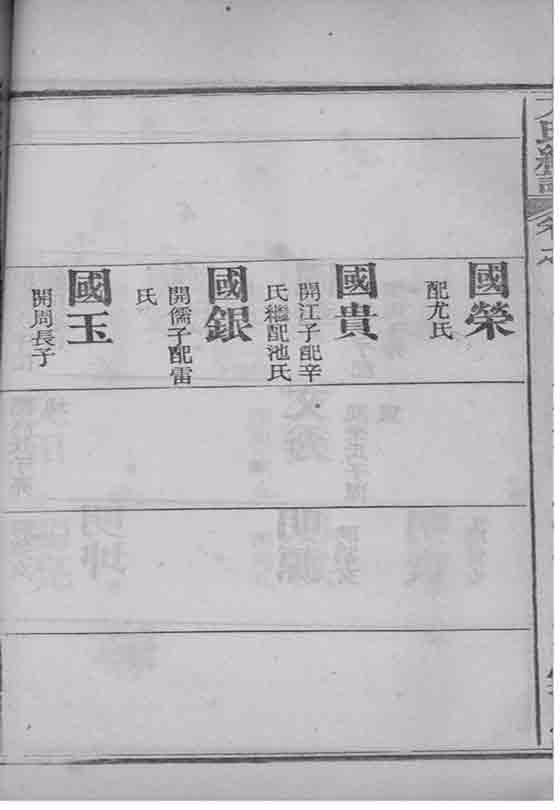 國榮
配尤氏
國貴
開江子配辛
氏繼配池氏
國銀
開儒子配雷
氏
國玉
開周長子